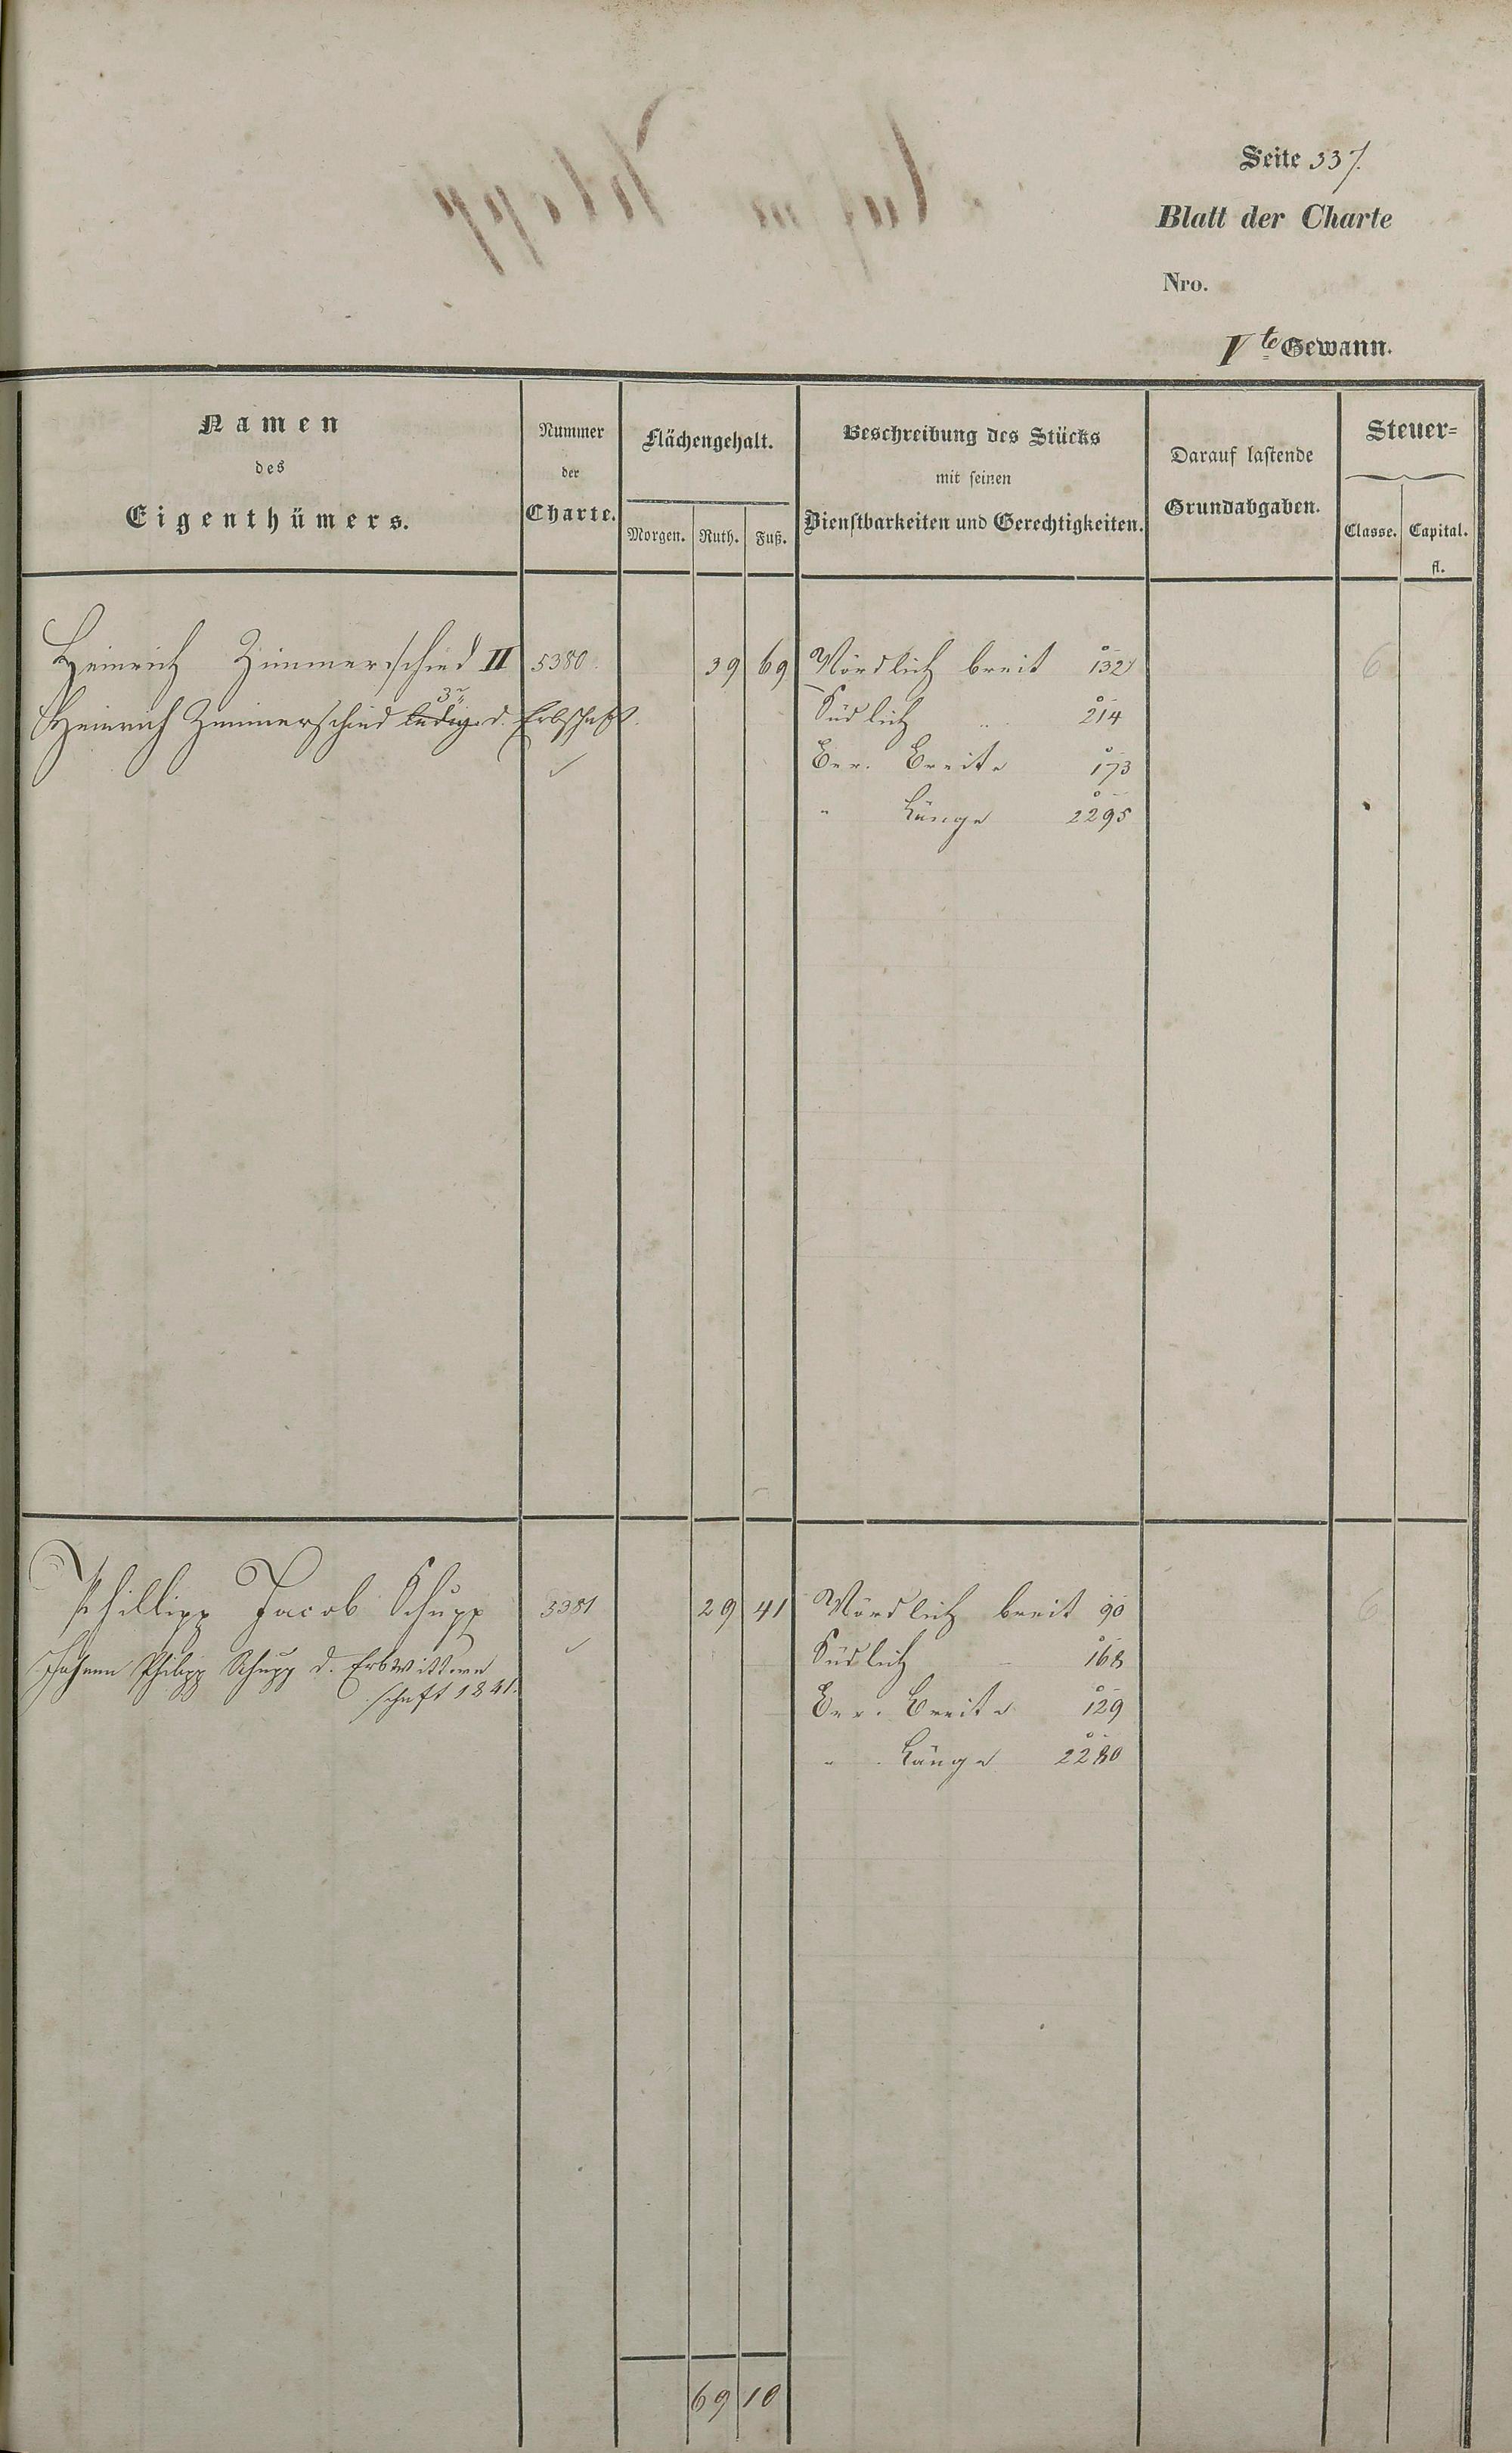 Seite 337.
Blatt der Charte
Nro.
Vte Gewann.
Namen
des
Eigenthümers.
Nummer
der
Charte.
Flächengehalt.
Morgen. Ruth. Fuß.
Beschreibung des Stücks
mit seinen
Dienstbarkeiten und Gerechtigkeiten.
Darauf lastende
Grundabgaben.
Steuer=
Classe. Capital.
fl.
Heinrich Zimmerschied II 5380. 39 69 Nördlich breit 132 6
Heinrich Zimmerschied ledig 3r d. Erbschaft.
Südlich " 214
Ber. Breite 173
" Länge 2295
Phillipp Jacob Schupp 3381 29 41 Nördlich breit 90 6
Johann Philipp Schupp d. Erb
schaft 1841.
Südlich - 168
Ber. Breite 129
" Länge 2280
69 10